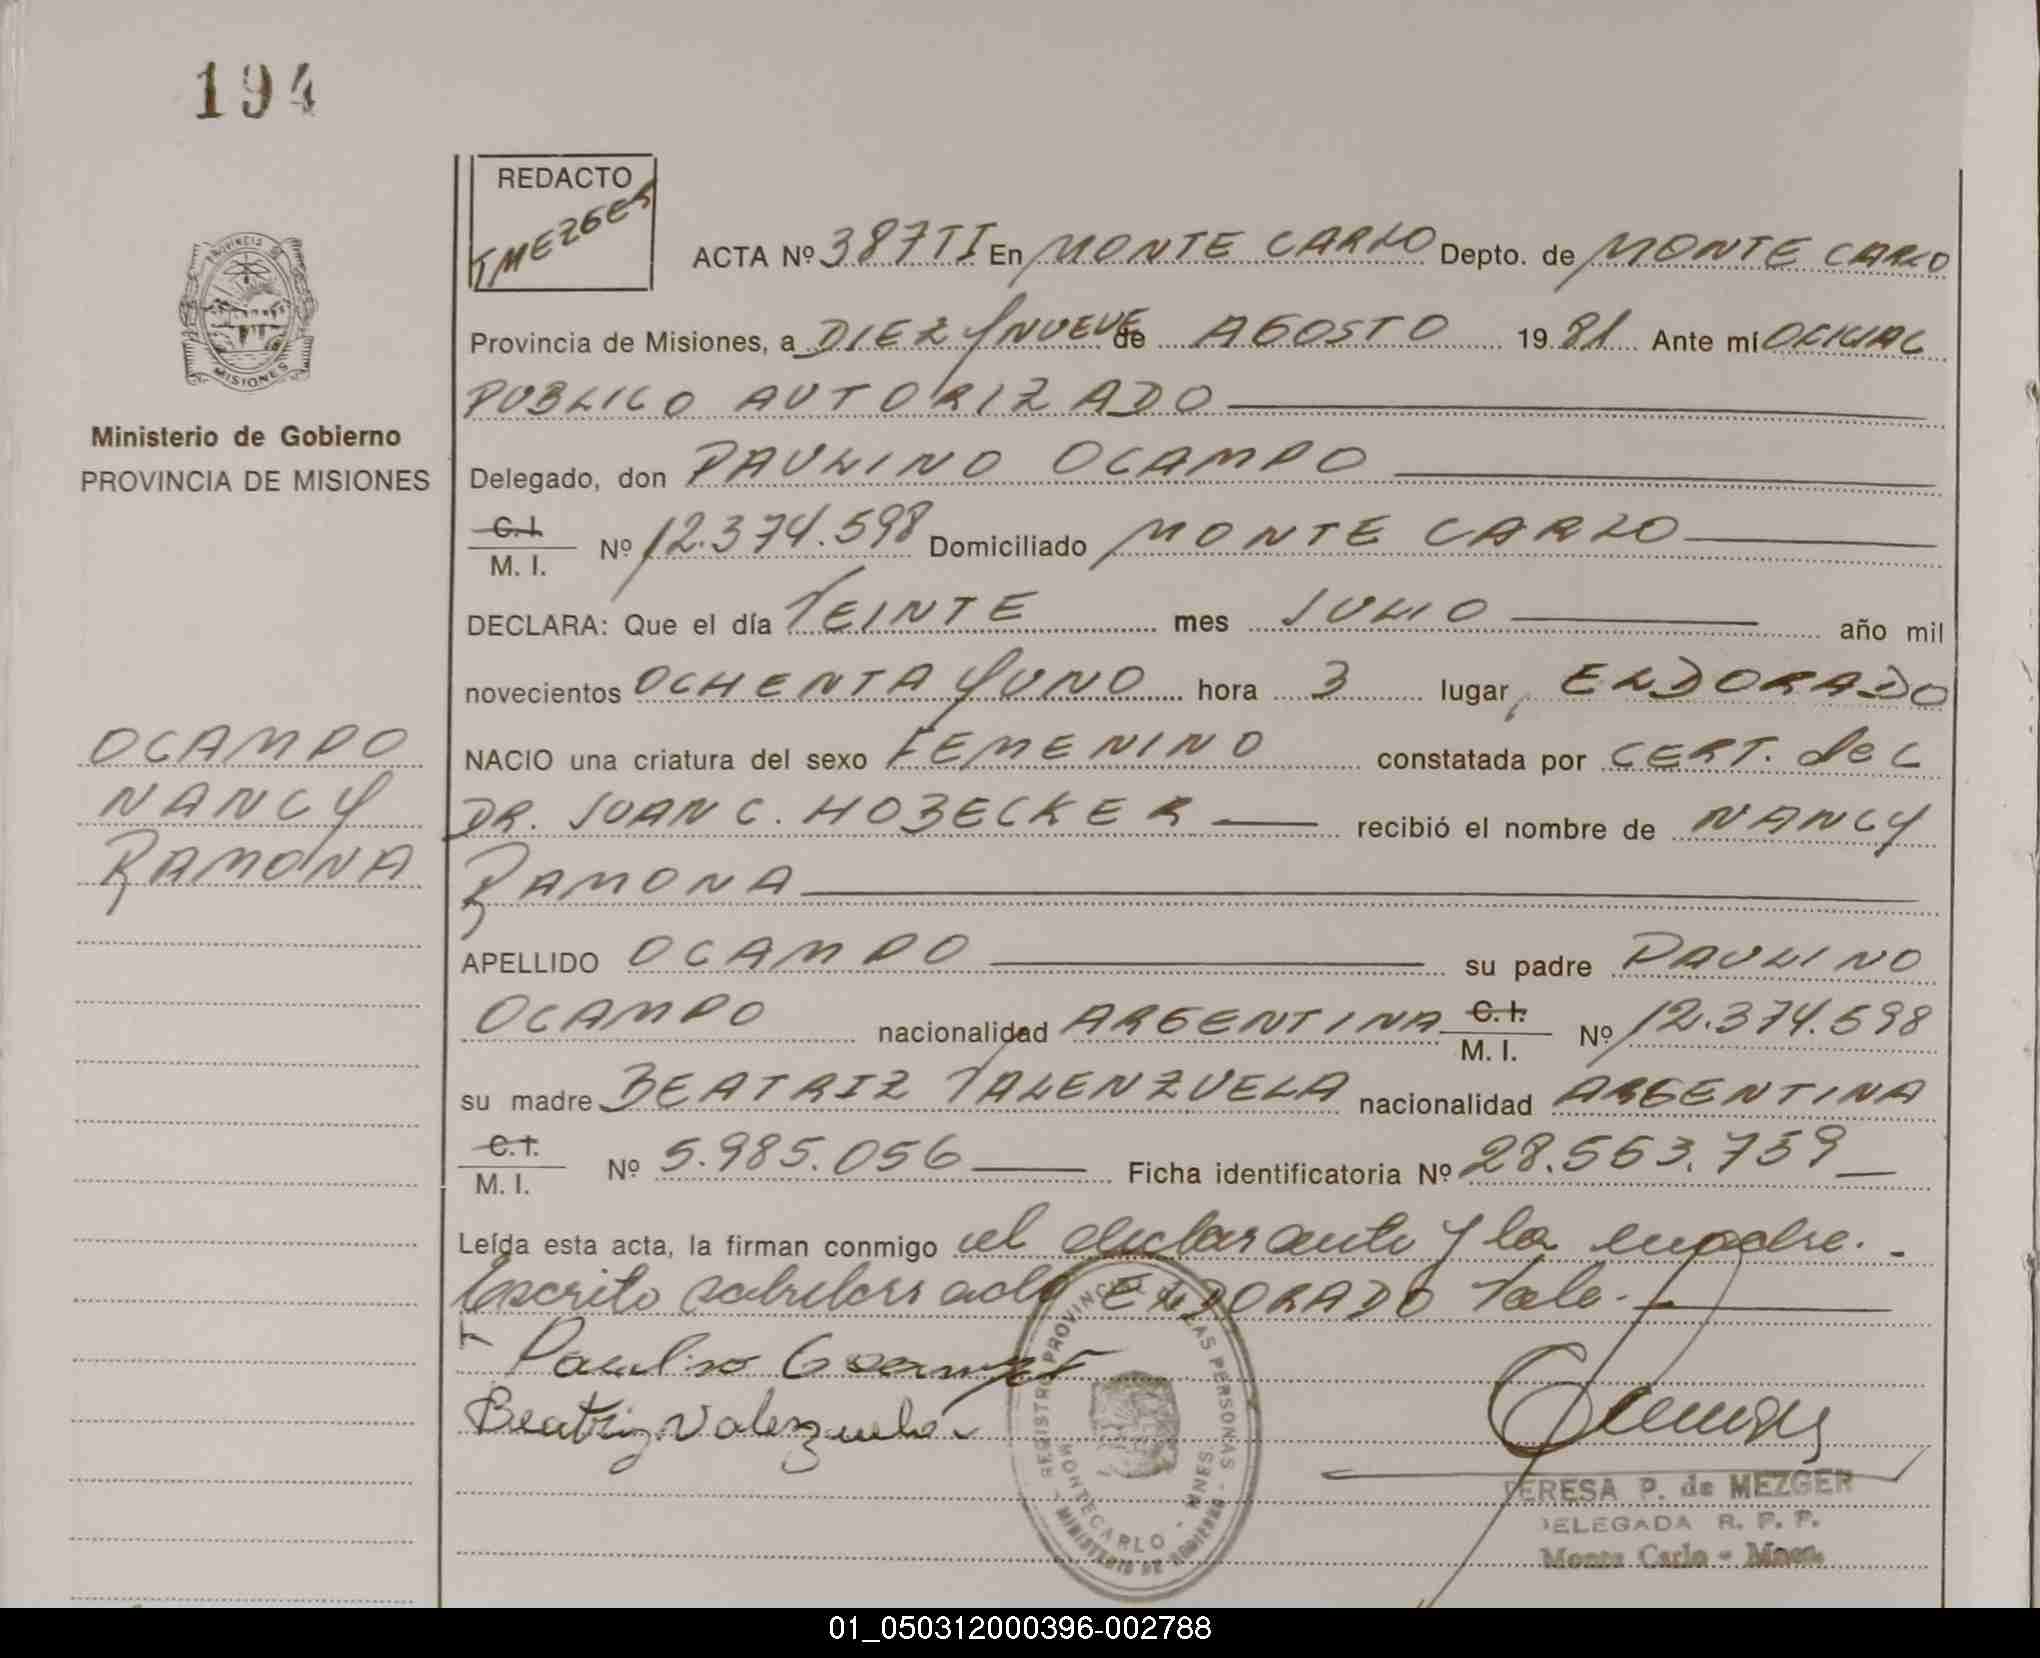 194
REDACTO
TMEZGER
ACTA Nº 387TI En MONTE CARLO Depto. de MONTE CARLO
Provincia de Misiones, a DIEZ Y NUEVE de AGOSTO 1981 Ante mí OFICIAL
PUBLICO AUTORIZADO
Delegado, don PAULINO OCAMPO
C.I. M. I. Nº 12.374.598 Domiciliado MONTE CARLO
DECLARA: Que el día VEINTE mes JULIO año mil
novecientos OCHENTA Y UNO hora 3 lugar ELDORADO
NACIO una criatura del sexo FEMENINO constatada por CERT. del
DR. JUAN C. HOBECKER recibió el nombre de NANCY
RAMONA
APELLIDO OCAMPO su padre PAULINO
OCAMPO nacionalidad ARGENTINA C.I. M. I. Nº 12.374.598
su madre BEATRIZ VALENZUELA nacionalidad ARGENTINA
C.I. M. I. Nº 5.985.056 Ficha identificatoria Nº 28.563.739
Leída esta acta, la firman conmigo el declarante y la madre.-
Escrito sobreborrado ELDORADO Vale.-
Beatriz Valezuela
PROVINCIA DE
MISIONES
Ministerio de Gobierno
PROVINCIA DE MISIONES
OCAMPO
NANCY
RAMONA
REGISTRO PROVINCIAL DE LAS PERSONAS
MONTECARLO - MNES
MINISTERIO DE GOBIERNO
TERESA P. de MEZGER
DELEGADA R. P. P.
Monte Carlo - Mnes.
01_050312000396-002788